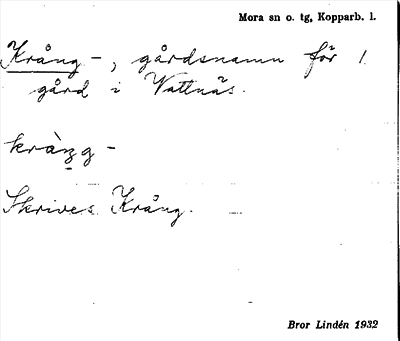 Mora sn o. tg, Kopparb. l.
Krång -, gårdsnamn för 1
gård i Vattnäs.
kràŋg -
Skrives Krång.
Bror Lindén 1932